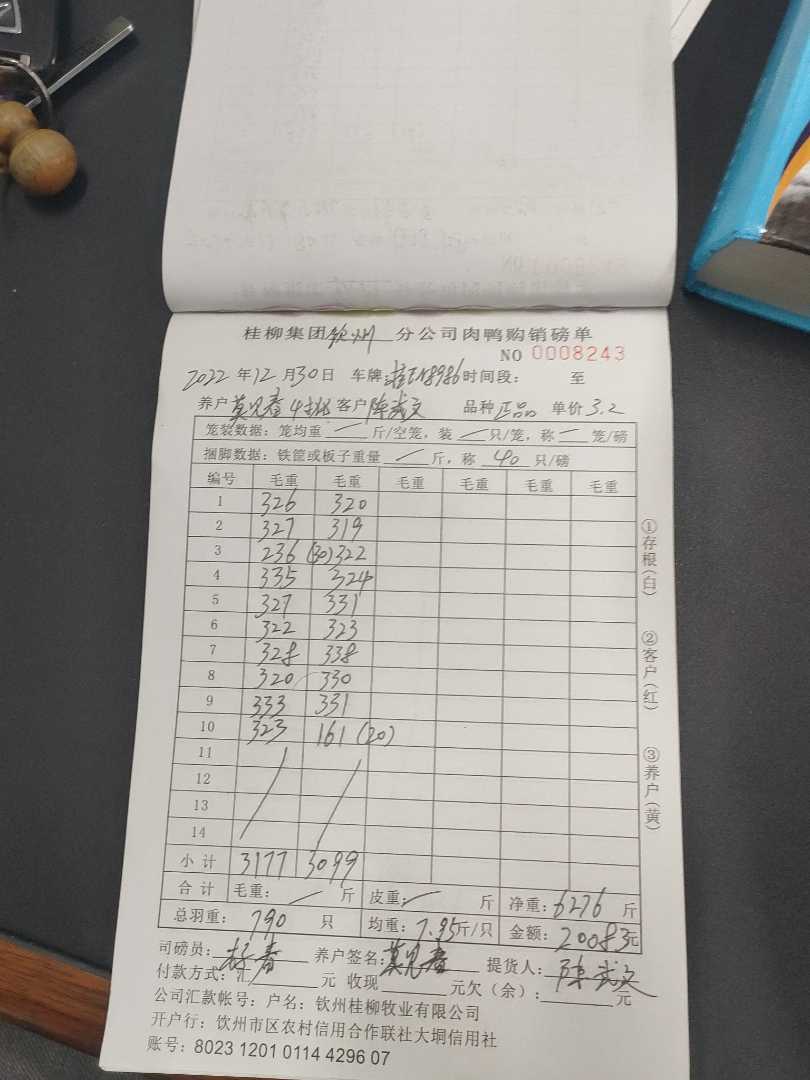 桂柳集团钦州分公司肉鸭购销磅单
NO 0008243
2022年12月30日 车牌:桂E18986 时间段: 至
养户 莫见春 4批 客户 陈武文 品种 正品 单价 3.2
笼装数据: 笼均重 — 斤/空笼, 装 — 只/笼, 称 — 笼/磅
捆脚数据: 铁筐或板子重量 — 斤, 称 40 只/磅
编号 毛重 毛重 毛重 毛重 毛重 毛重
1 326 320
2 327 319
3 236 (30) 322
4 335 324
5 327 331
6 322 323
7 328 338
8 320 330
9 333 331
10 323 161 (20)
11
12
13
14
小计 3177 3099
合计 毛重: — 斤 皮重: — 斤 净重: 6276 斤
总羽重: 790 只 均重: 7.95 斤/只 金额: 20083元
司磅员: 春 养户签名: 莫见春 提货人: 陈武文
付款方式: 汇 元 收现 元欠(余): 元
公司汇款帐号: 户名: 钦州桂柳牧业有限公司
开户行: 钦州市区农村信用合作联社大垌信用社
账号: 8023 1201 0114 4296 07
①存根(白)
②客户(红)
③养户(黄)